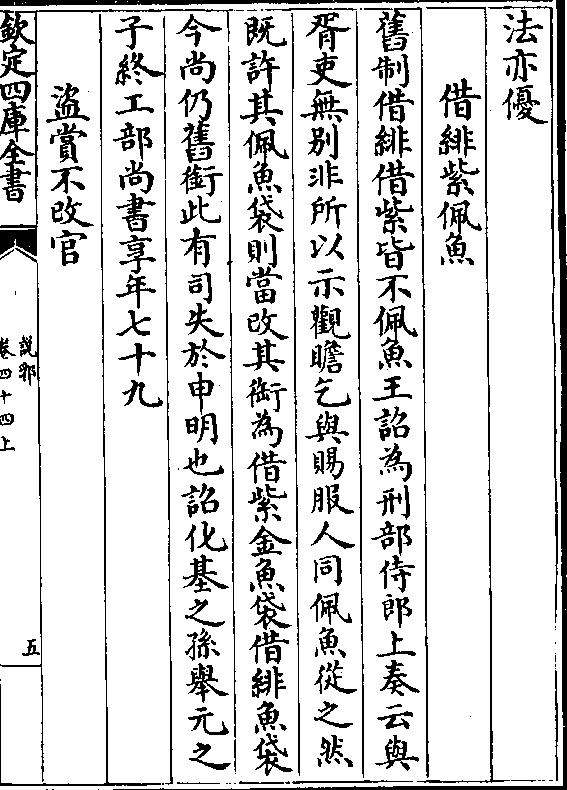 法亦優
借緋紫佩魚
舊制借緋借紫皆不佩魚王詔為刑部侍郎上奏云與
胥吏無別非所以示觀瞻乞與賜服人同佩魚從之然
既許其佩魚袋則當改其銜為借紫金魚袋借緋魚袋
今尚仍舊銜此有司失於申明也詔化基之孫舉元之
子終工部尚書享年七十九
盜賞不改官
欽定四庫全書
說郛
卷四十四上
五